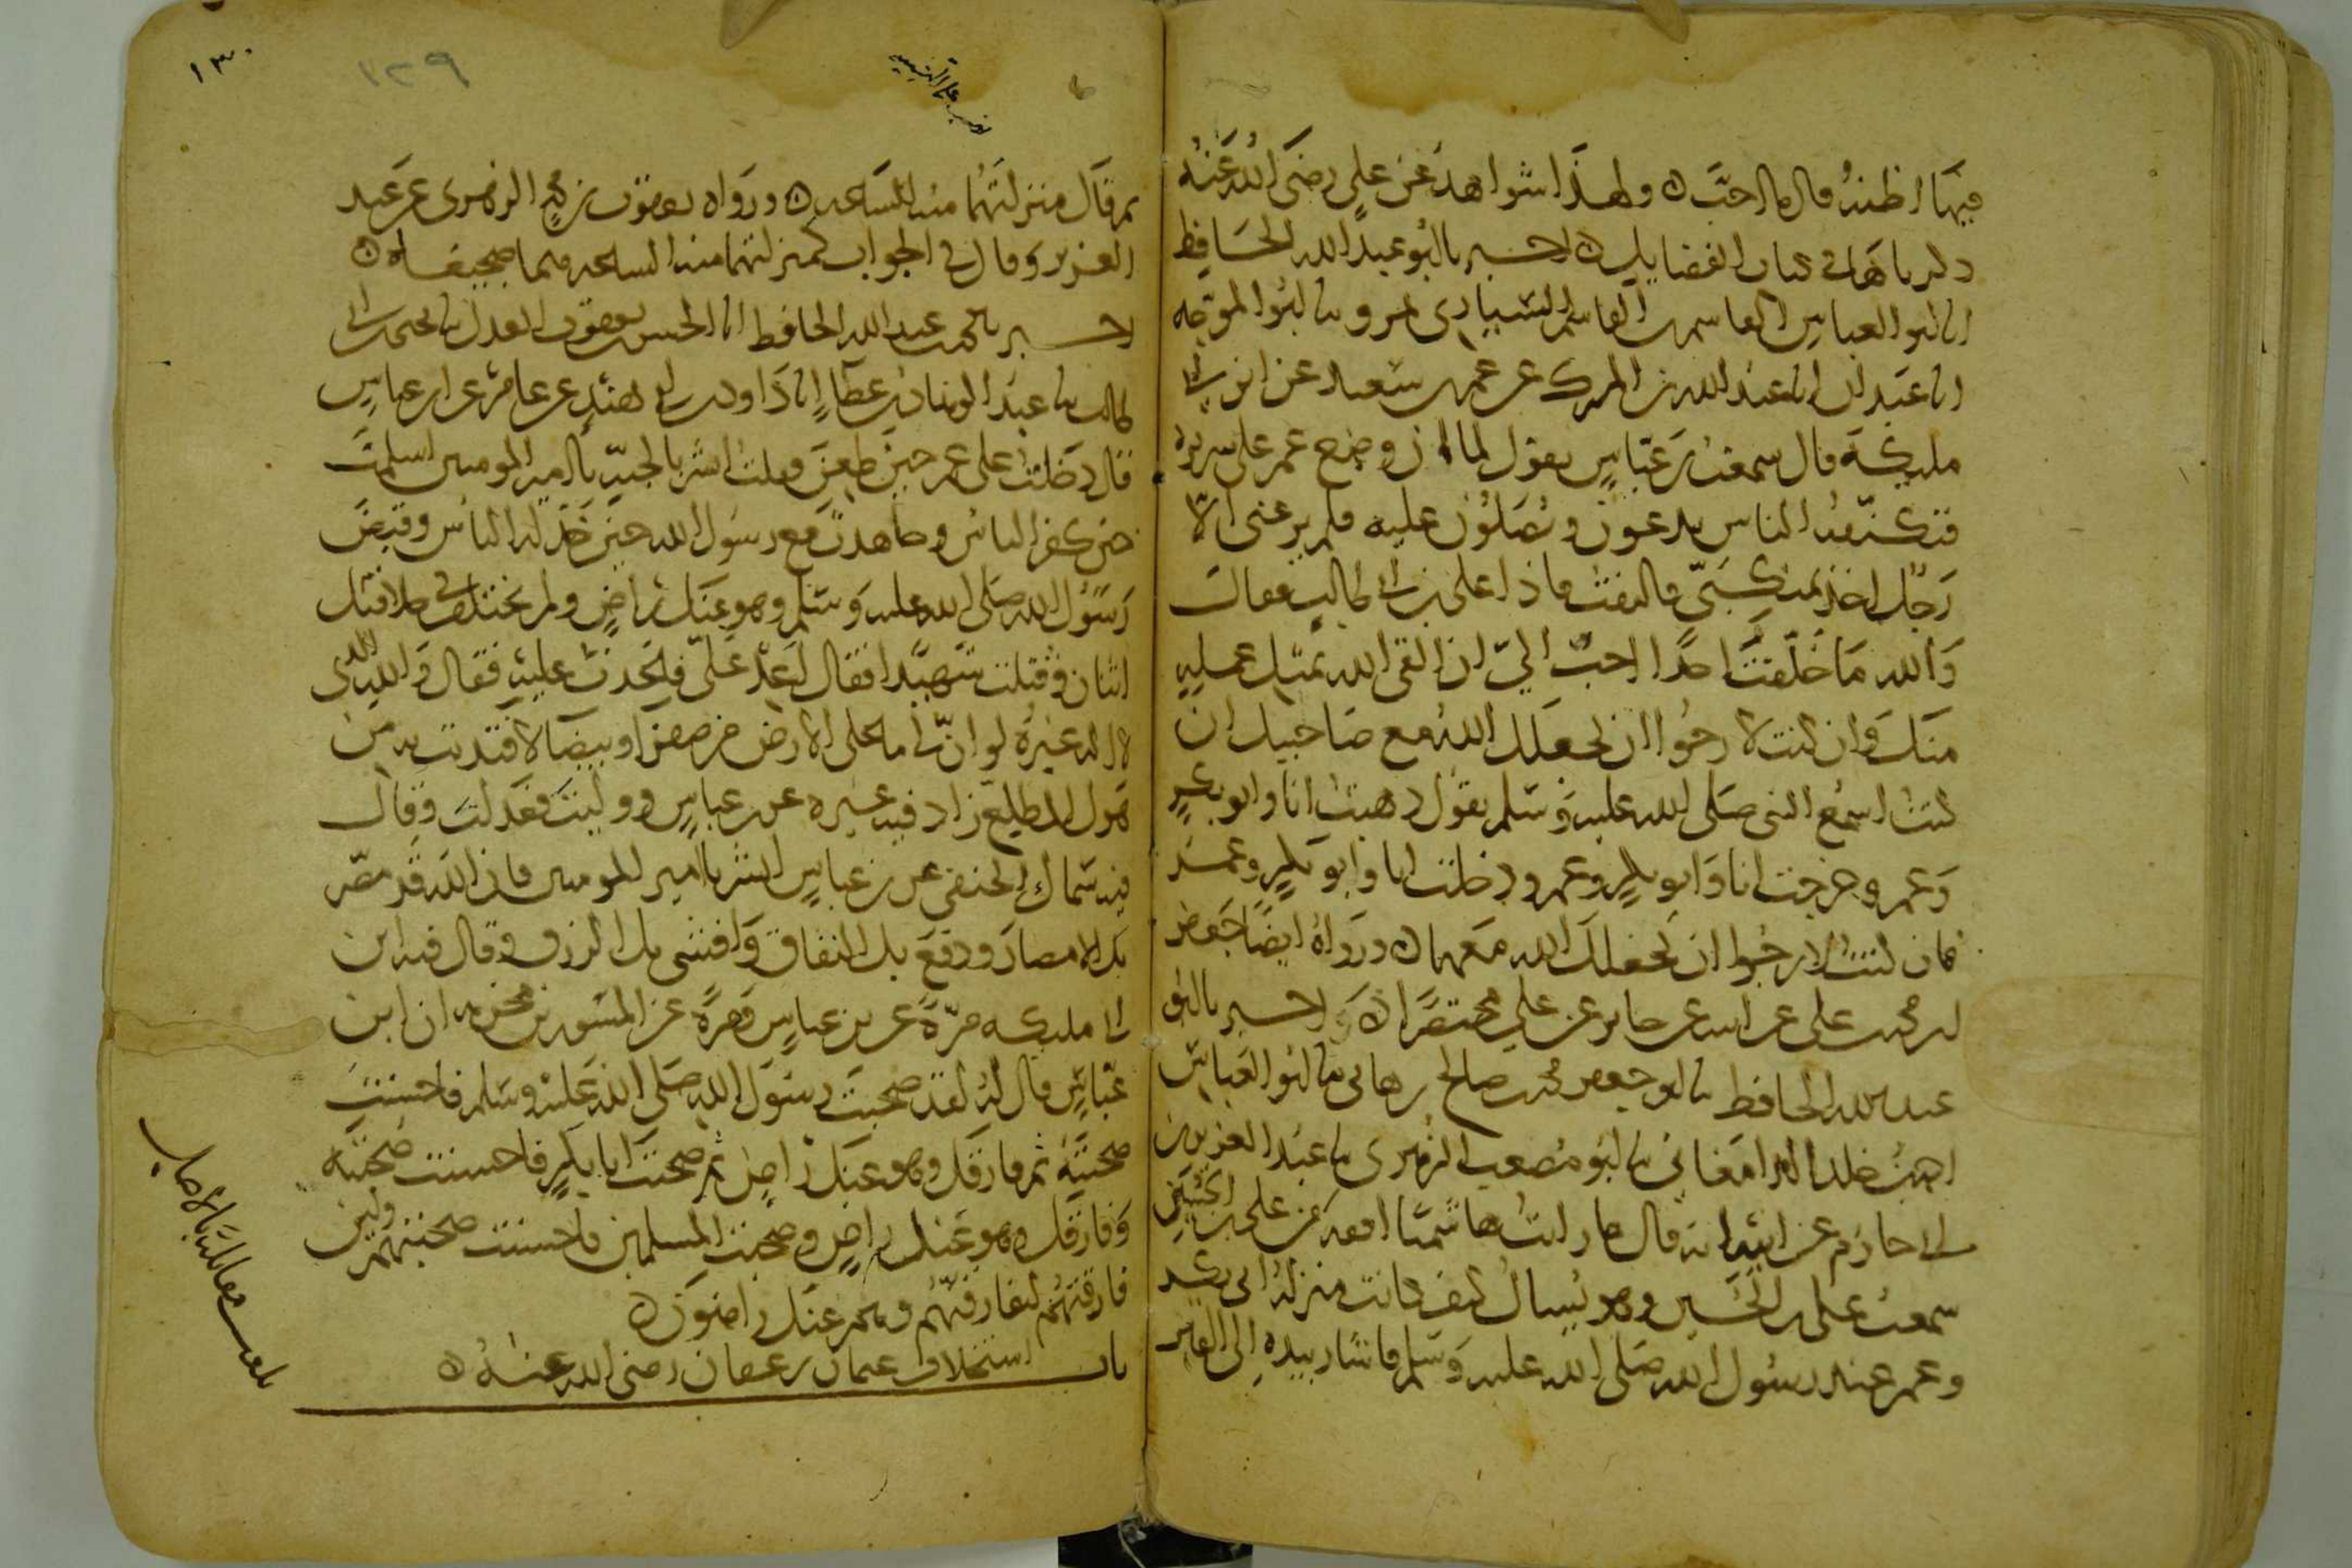 فيها اظنه قال ما احب ٥ ولهذا شواهد عن علي رضي الله عنه
ذكرناها في كتاب الفضايل ٥ اخبرنا ابو عبد الله الحافظ
انا ابو العباس القاسم بن القاسم السياري بمرو نا ابو الموجه
انا عبدان انا عبد الله بن المبرك عن عمر بن سعيد عن ابن ابي
مليكة قال سمعت بن عباس يقول لما ان وضع عمر على سريره
فتكنفه الناس يدعون ويصلون عليه فلم يرعني الا
رجل اخذ بمنكبي فالتفت فاذا علي بن ابي طالب فقال
والله ما خلفت احدا احب الي ان القى الله بمثل عمله
منك وان كنت لارجوا ان يجعلك الله مع صاحبيك ان
كنت اسمع النبي صلى الله عليه وسلم يقول ذهبت انا وابو بكر
وعمر وخرجت انا وابو بكر وعمر ودخلت انا وابو بكر وعمر
فان كنت لارجوا ان يجعلك الله معهما ٥ ورواه ايضا جعفر
بن محمد بن علي عن ابيه عن جابر عن علي مختصرا ٥ واخبرنا ابو
عبد الله الحافظ نا ابو جعفر محمد بن صالح بن هاني نا ابو العباس
احمد بن خلد الدامغاني نا ابو مصعب الزهري نا عبد العزيز بن
ابي حازم عن ابيه انه قال ما رايت هاشميا افقه من علي بن الحسين
سمعت علي بن الحسين وهو يسال كيف كانت منزلة ابي بكر
وعمر عند رسول الله صلى الله عليه وسلم فاشار بيده الى القبر
١٣٠
١٢٩
ثم قال منزلتهما منه الساعه ٥ ورواه يعقوب بن محمد الزهري عن عبد
العزيز وقال في الجواب كمنزلتهما منه الساعه هما ضجيعاه ٥
اخبرنا محمد بن عبد الله الحافظ انا الحسن بن يعقوب العدل نا يحيى بن ابي
طالب نا عبد الوهاب بن عطا انا داود بن ابي هند عن عامر عن ابن عباس
قال دخلت على عمر حين طعن فقلت ابشر بالجنة يا امير المومنين اسلمت
حين كفر الناس وجاهدت مع رسول الله حين خذله الناس وقبض
رسول الله صلى الله عليه وسلم وهو عنك راض ولم يختلف في خلافتك
اثنان وقتلت شهيدا فقال اعد علي فاعدت عليه فقال والله الذي
لا اله غيره لو ان لي ما على الارض من صفرا وبيضا لافتديت به من
هول المطلع زاد فيه غيره عن بن عباس ووليت فعدلت وقال
فيه سماك الحنفي عن بن عباس ابشر يا امير المومنين فان الله قد مصر
بك الامصار ودفع بك النفاق وافشى بك الرزق وقال فيه ابن
ابي مليكه مرة عن بن عباس ومرة عن المسور بن مخرمه ان ابن
عباس قال له لقد صحبت رسول الله صلى الله عليه وسلم فاحسنت
صحبته ثم فارقك وهو عنك راض ثم صحبت ابا بكر فاحسنت صحبته
وفارقك وهو عنك راض وصحبت المسلمين فاحسنت صحبتهم ولين
فارقتهم لتفارقنهم وهم عنك راضون ٥
باب استخلاف عثمان بن عفان رضي الله عنه ٥
بلغت مقابلة بالاصل